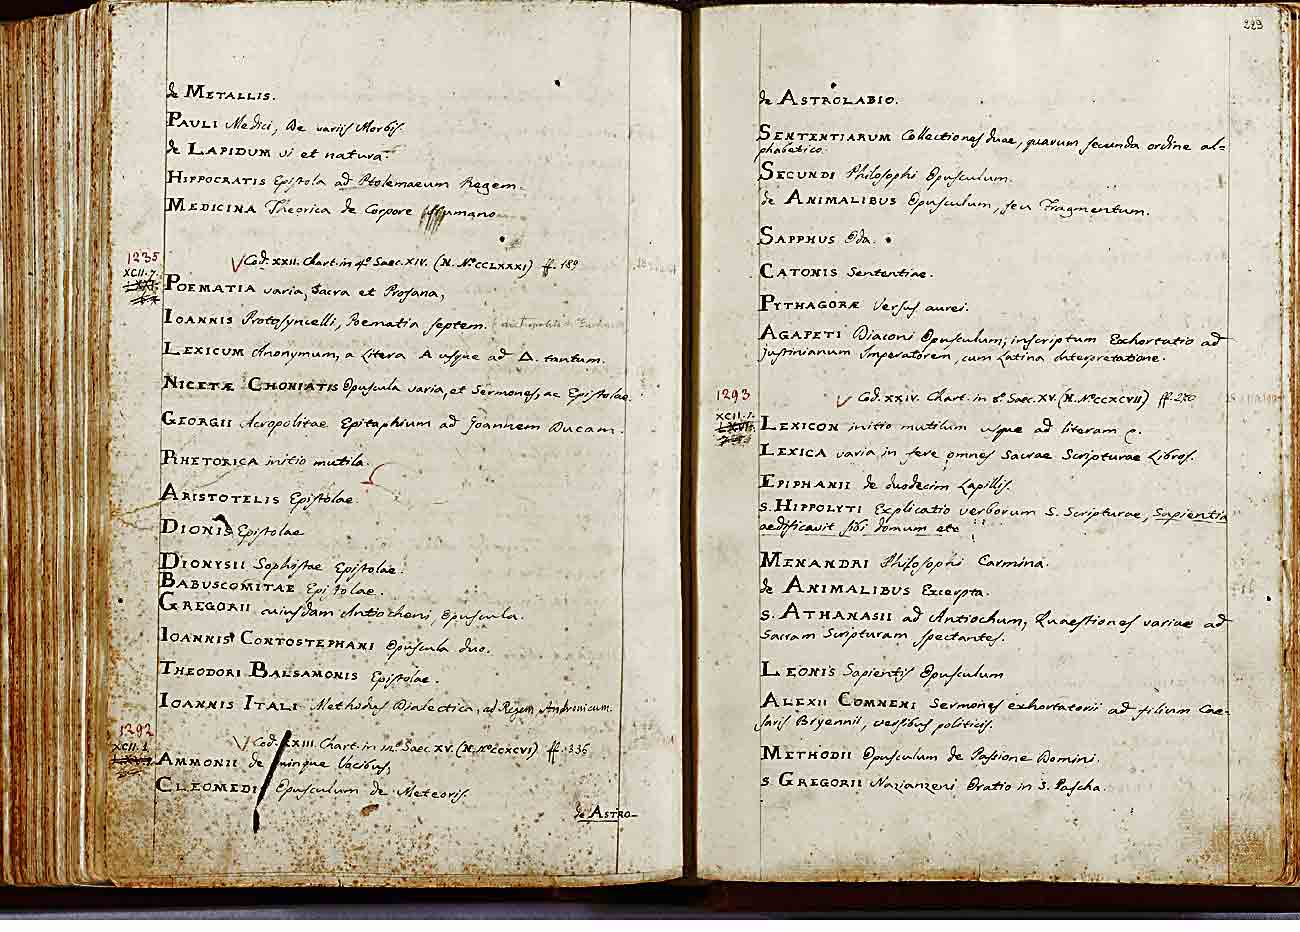 de METALLIS.
PAULI Medici, De variis Morbis.
de LAPIDUM vi et natura.
HIPPOCRATIS Epistola ad Ptolemaeum Regem.
MEDICINA Theorica de Corpore Humano
1235
XCII.7.
Cod. XXII. Chart. in 4º. Saec. XIV. (N. Nº CCLXXXI) ff. 189
POEMATIA varia, Sacra et Profana,
IOANNIS Protosyncelli, Poematia septem.
LEXICUM Anonymum, a Litera A usque ad Δ. tantum.
NICETÆ CHONIATIS Opuscula varia, et Sermones, ac Epistolae.
GEORGII Acropolitae Epitaphium ad Joannem Ducam.
RHETORICA initio mutila.
ARISTOTELIS Epistolae.
DIONIS Epistolae
DIONYSII Sophistae Epistolae.
BABUSCOMITAE Epistolae.
GREGORII cuiusdam Antiocheni, Opuscula.
IOANNIS CONTOSTEPHANI Opuscula duo.
THEODORI BALSAMONIS Epistolae.
IOANNIS ITALI Methodus Dialectica, ad Regem Andronicum.
1292
XCII.2.
Cod. XXIII. Chart. in 8º. Saec. XV. (N. Nº CCXCVI) ff. 336
AMMONII de quinque Vocibus,
CLEOMEDIS Opusculum de Meteoris.
de ASTRO-
229
de ASTROLABIO.
SENTENTIARUM Collectiones duae, quarum secunda ordine al=
phabetico.
SECUNDI Philosophi Opusculum.
de ANIMALIBUS Opusculum, seu Fragmentum.
SAPPHUS Oda.
CATONIS Sententiae.
PYTHAGORÆ Versus aurei.
AGAPETI Diaconi Opusculum, inscriptum Exhortatio ad
Justinianum Imperatorem, cum Latina Interpretatione.
1293
XCII.1.
Cod. XXIV. Chart. in 8º. Saec. XV. (N. Nº CCXCVII) ff. 270
LEXICON initio mutilum usque ad literam ρ.
LEXICA varia in fere omnes Sacrae Scripturae Libros.
EPIPHANII de duodecim Lapillis.
S. HIPPOLYTI Explicatio verborum S. Scripturae, Sapientia
aedificavit sibi domum etc
MENANDRI Philosophi Carmina.
de ANIMALIBUS Excerpta.
S. ATHANASII ad Antiochum, Quaestiones variae ad
Sacram Scripturam spectantes.
LEONIS Sapientis Opusculum
ALEXII COMNENI Sermones exhortatorii ad filium Cae-
saris Bryennii, versibus politicis.
METHODII Opusculum de Passione Domini.
S. GREGORII Nazianzeni Oratio in S. Pascha.